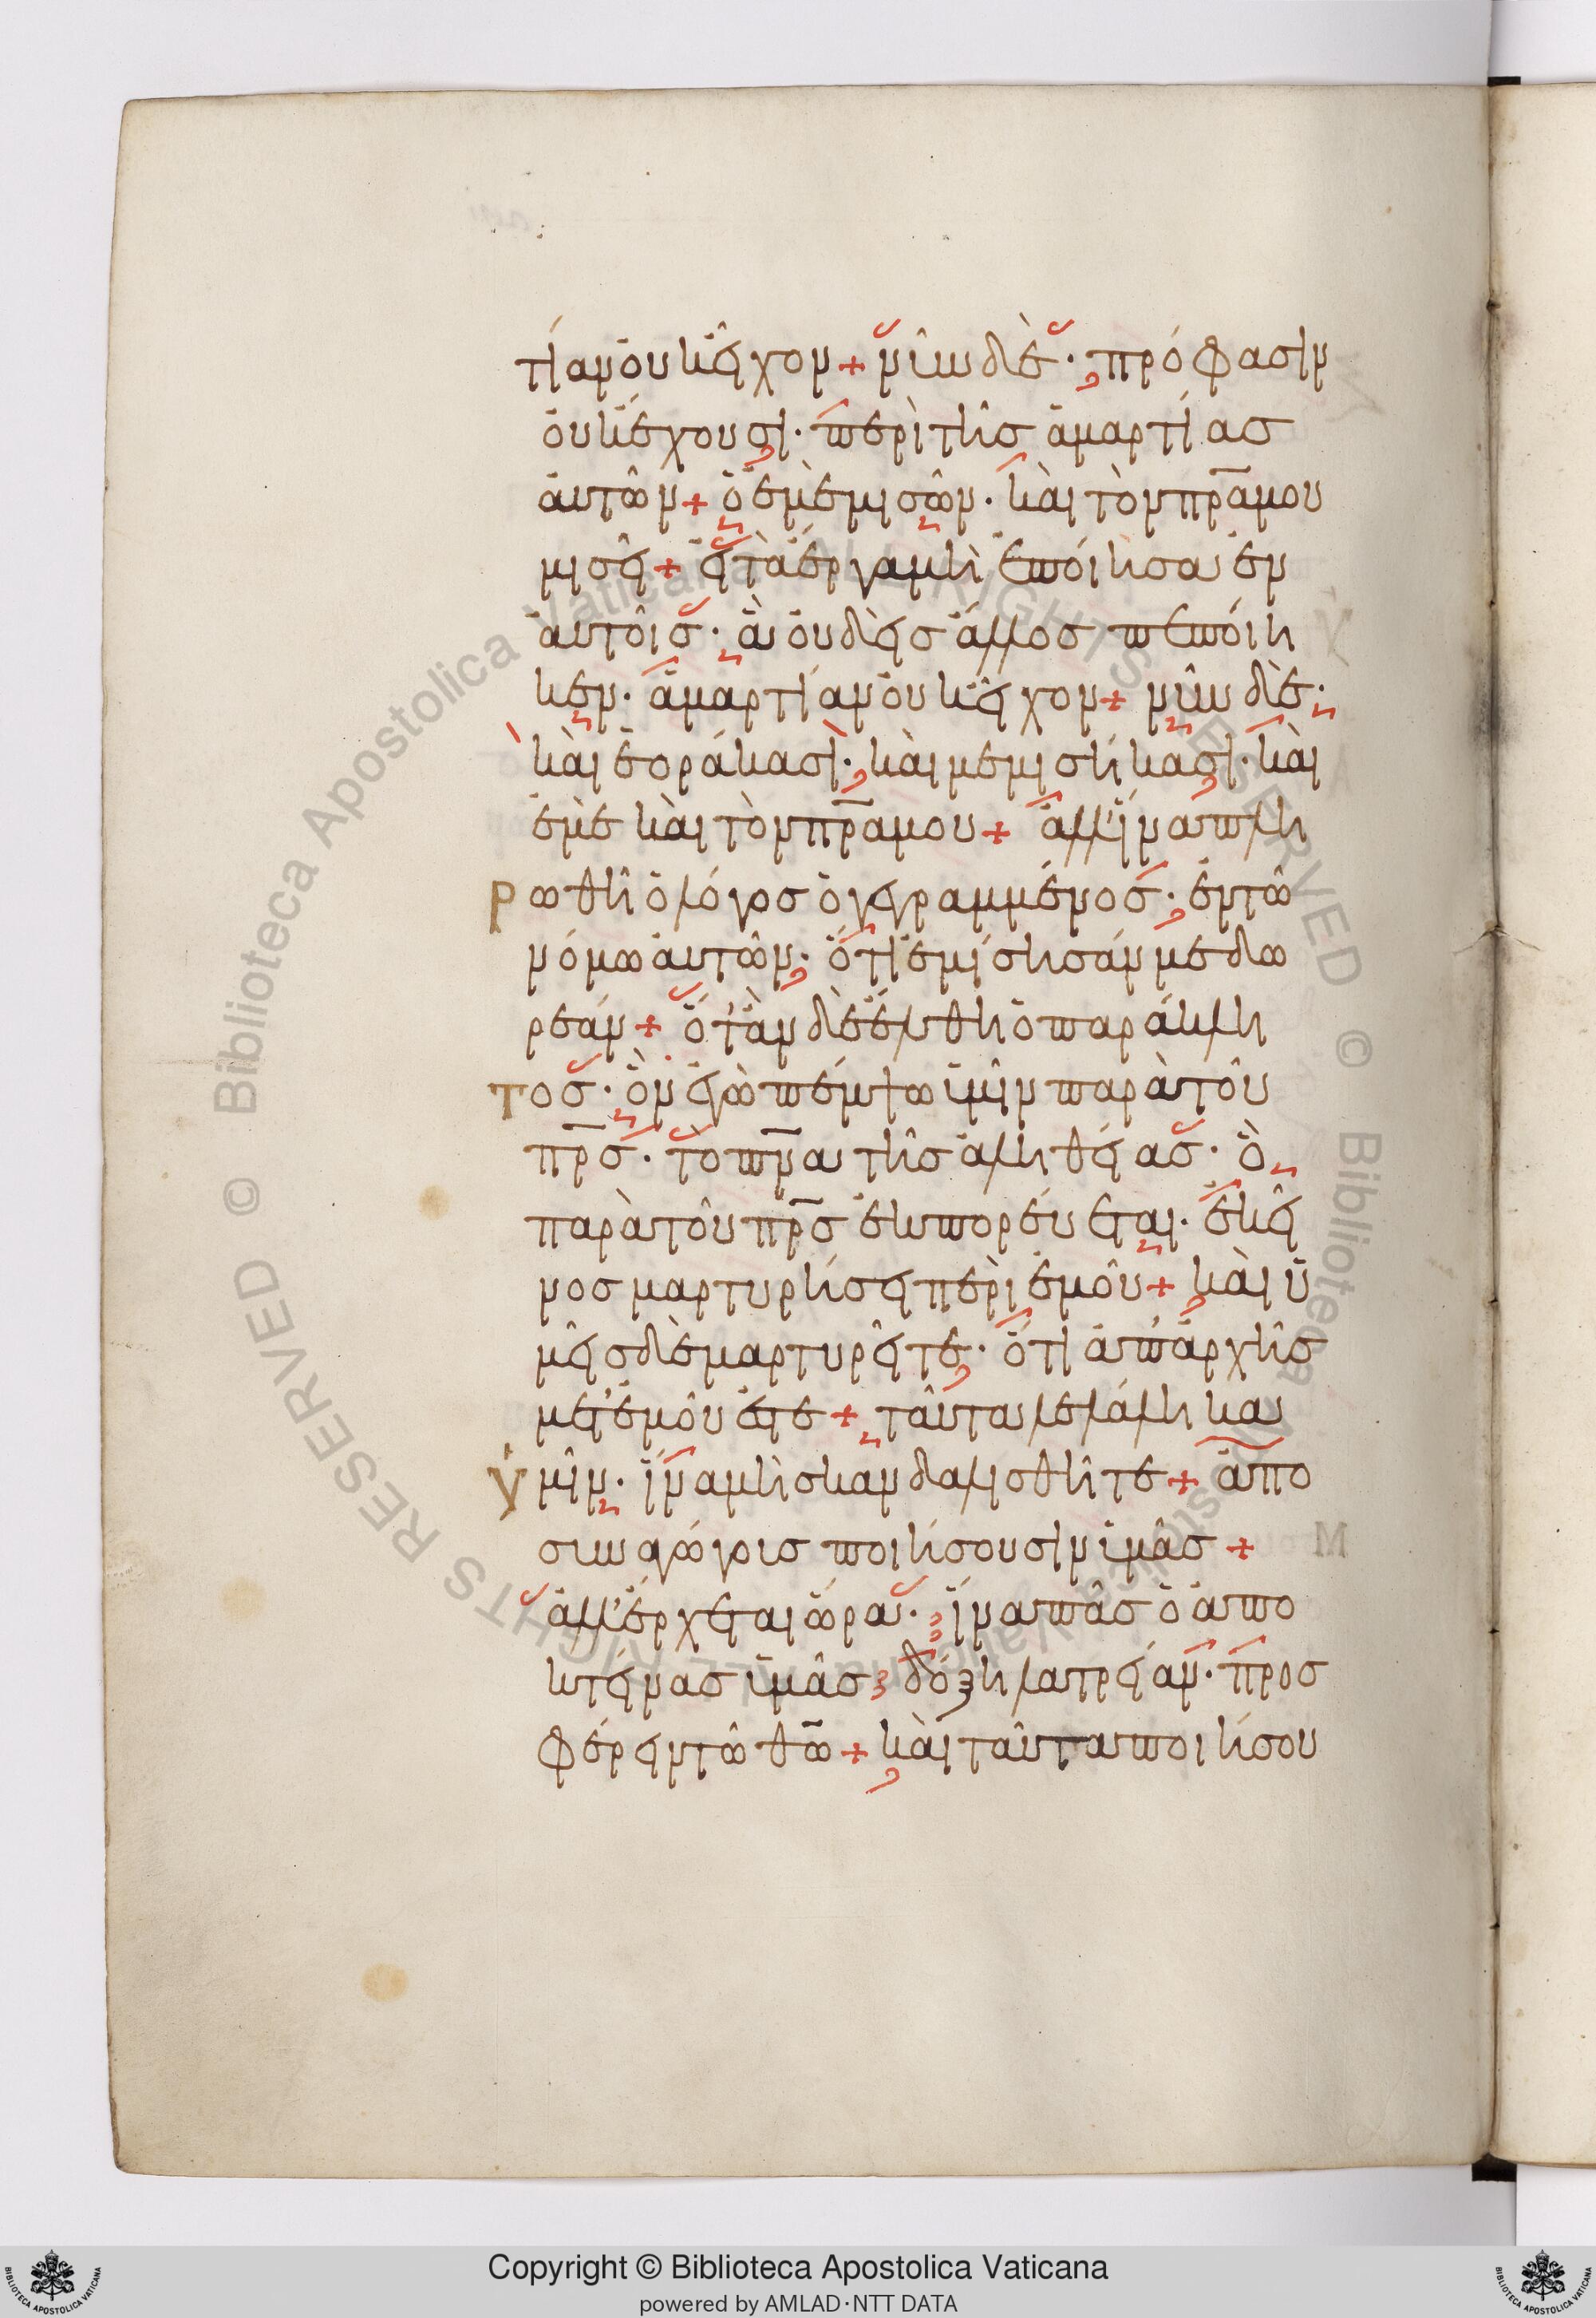 τίαν ὀυκ εἶχον + νῦν δὲ · πρόφασιν
ὀυκ ἔχουσι · περὶ τῆσ ἁμαρτίασ
ἀυτῶν + ὁ ἐμὲ μισῶν · κὰι τὸν πρ̅α μου
μισεῖ + εἰ τὰ ἔργα μὴ ἐποίησα ἐν
ἀυτοῖσ · ἃ ὀυδεὶσ ἄλλοσ πεποίη
κεν · ἁμαρτίαν ὀυκ εἶχον + νῦν δὲ ·
κὰι ἑοράκασι · κὰι μεμισήκασι · κὰι
ἐμὲ κὰι τὸν πρ̅α μου + ἀλλ' ἵνα πλη
ρωθῆ ὁ λόγοσ ὁ γεγραμμένοσ · ἐν τῶ
νόμω ἀυτῶν · ὅτι ἐμίσησάν με δω
ρεάν + ὅταν δὲ ἔλθη ὁ παράκλη
τοσ · ὃν ἐγὼ πέμψω ὑμῖν παρὰ τοῦ
πρ̅σ · τὸ πν̅α τῆσ ἀληθείασ · ὃ
παρὰ τοῦ πρ̅σ ἐκπορέυεται · ἐκεῖ
νοσ μαρτυρήσει περὶ ἐμοῦ + κὰι ὑ
μεῖσ δὲ μαρτυρεῖτε · ὅτι ἀπ' ἀρχῆσ
μετ' ἐμοῦ ἐστε + ταῦτα λελάληκα
ὑμῖν · ἵνα μὴ σκανδαλισθῆτε + ἀπο
συναγώγουσ ποιήσουσιν ὑμᾶσ +
ἀλλ' ἔρχεται ὥρα · ἵνα πᾶσ ὁ ἀπο
κτείνασ ὑμᾶσ δόξη λατρείαν · προσ
φέρειν τῶ θω̅ + κὰι ταῦτα ποιήσου
Copyright © Biblioteca Apostolica Vaticana
powered by AMLAD·NTT DATA